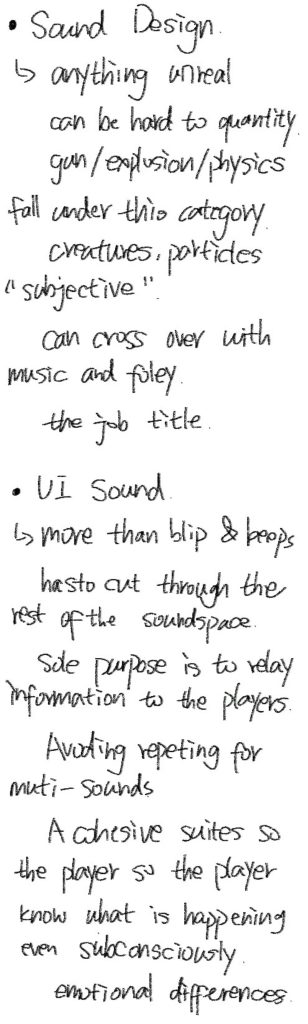 • Sound Design.
↳ anything unreal
can be hard to quantity.
gun/explosion/physics
fall under this category.
creatures, particles
"subjective".
can cross over with
music and foley.
the job title.
• UI Sound.
↳ more than blip & beeps
hasto cut through the
rest of the soundspace.
Sole purpose is to relay
information to the players.
Avoding repeting for
muti-sounds
A cohesive suites so
the player so the player
know what is happening
even subconsciously.
emotional differences.